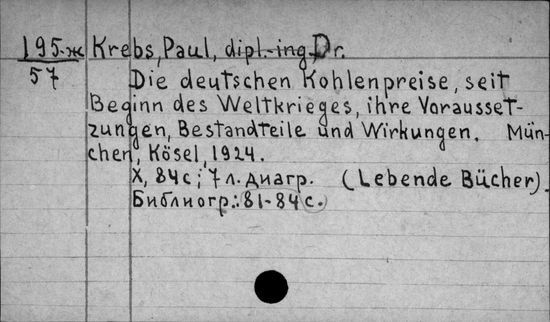 195-ж Krebs, Paul, dipl.-ing. Dr.
57 Die deutschen Kohlenpreise, seit
Beginn des Weltkrieges, ihre Vorausset-
zungen, Bestandteile und Wirkungen. Mün-
chen, Kösel, 1924.
X, 84 с; 7 л. диагр. (Lebende Bücher).
Библиогр.: 81-84 с.